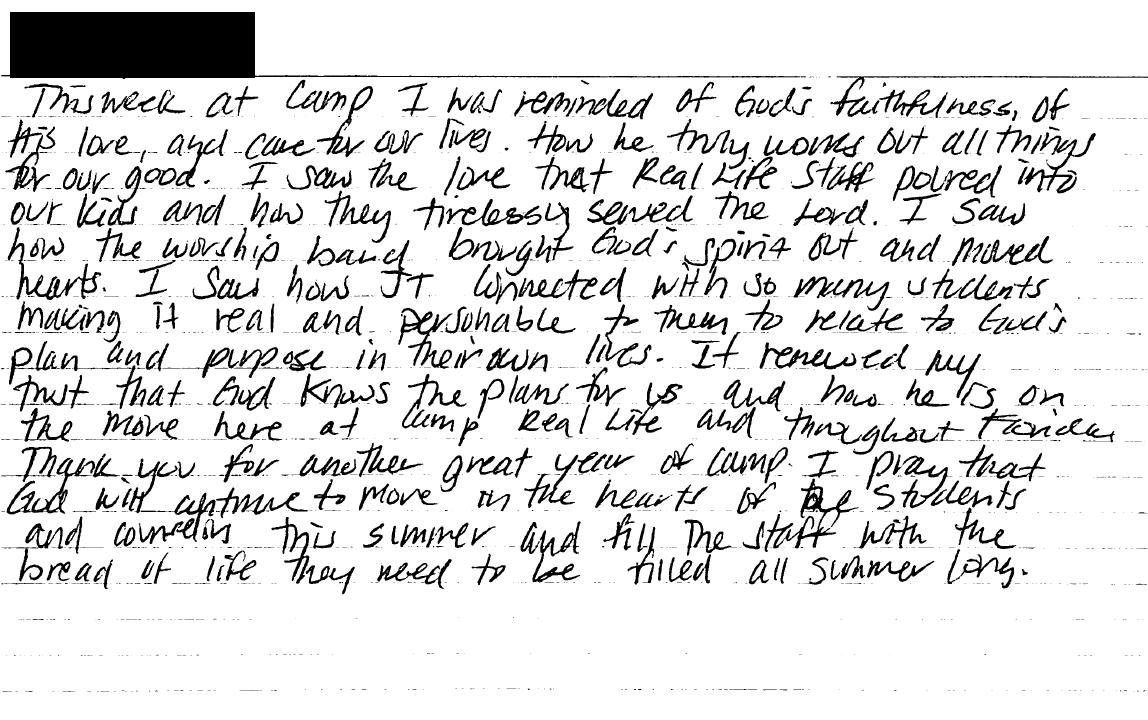 This week at Camp I was reminded of God's faithfulness, of
His love, and care for our lives. How he truly works out all things
for our good. I saw the love that Real Life Staff poured into
our kids and how they tirelessly served the Lord. I saw
how the worship band brought God's spirit out and moved
hearts. I saw how JT connected with so many students
making it real and personable to them to relate to God's
plan and purpose in their own lives. It renewed my
trust that God knows the plans for us and how he is on
the move here at Camp Real Life and throughout Florida
Thank you for another great year of camp. I pray that
God will continue to move in the hearts of the students
and counselors this summer and fill the staff with the
bread of life they need to be filled all summer long.